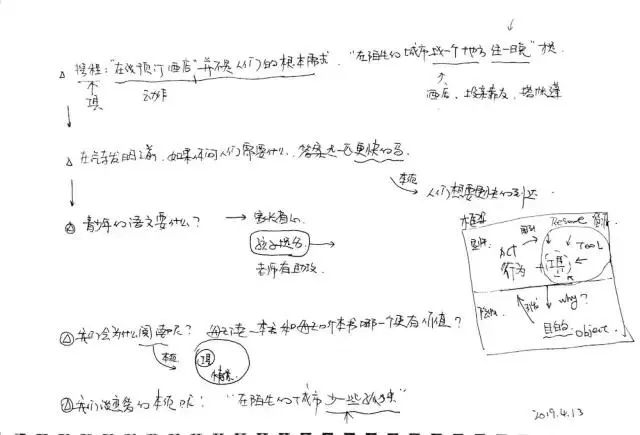 携程：“在线预订酒店”并不是人们的根本需求．“在陌生的城市找一个地方住一晚”才是．
工具
动作
酒店、投亲靠友、搭帐篷
在汽车发明之前，如果你问人们需要什么，答案是一匹更快的马．
本质
人们想要更快的到达
青少年的语文要什么？
家长省心
孩子提分
老师有助攻
框架
Resume
ACT
行为
工具
TOOL
why?
目的 object.
我们会为什么阅读
本质
工具
读一本书和 哪一个更有价值？
本质 ：“在陌生的城市少一些孤独”
2019.4.13